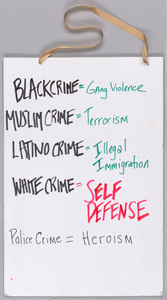 BLACK CRIME = GANG VIOLENCE
MUSLIM CRIME = Terrorism
LATINO CRIME = Illegal
Immigration
WHITE CRIME = SELF
DEFENSE
Police Crime = Heroism